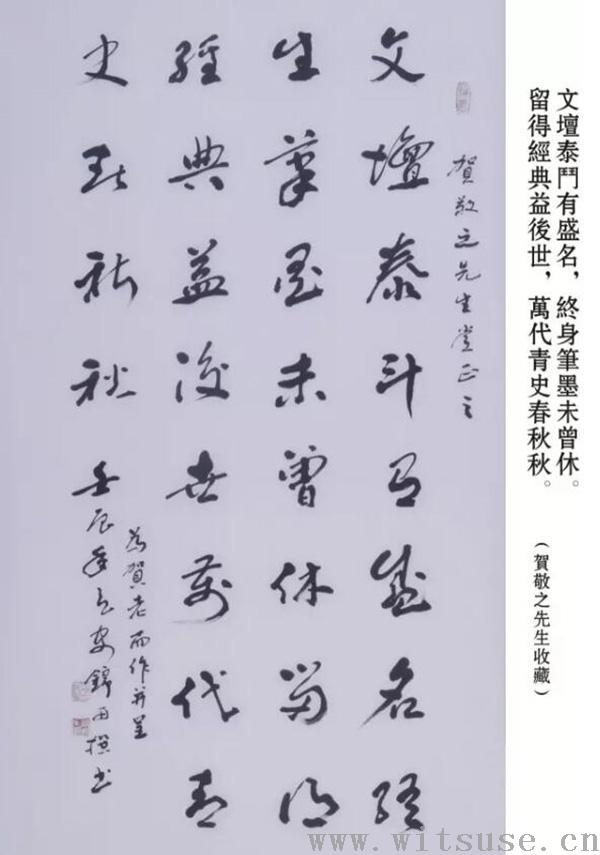 文壇泰鬥有盛名，終身筆墨未曾休。
留得經典益後世，萬代青史春秋秋。
（賀敬之先生收藏）
賀敬之先生正之
文壇泰斗有盛名終
生筆墨未曾休留得
經典益後世萬代青
史秋
為賀老而作并呈
壬辰年錦田撰书
www.witsuse.cn